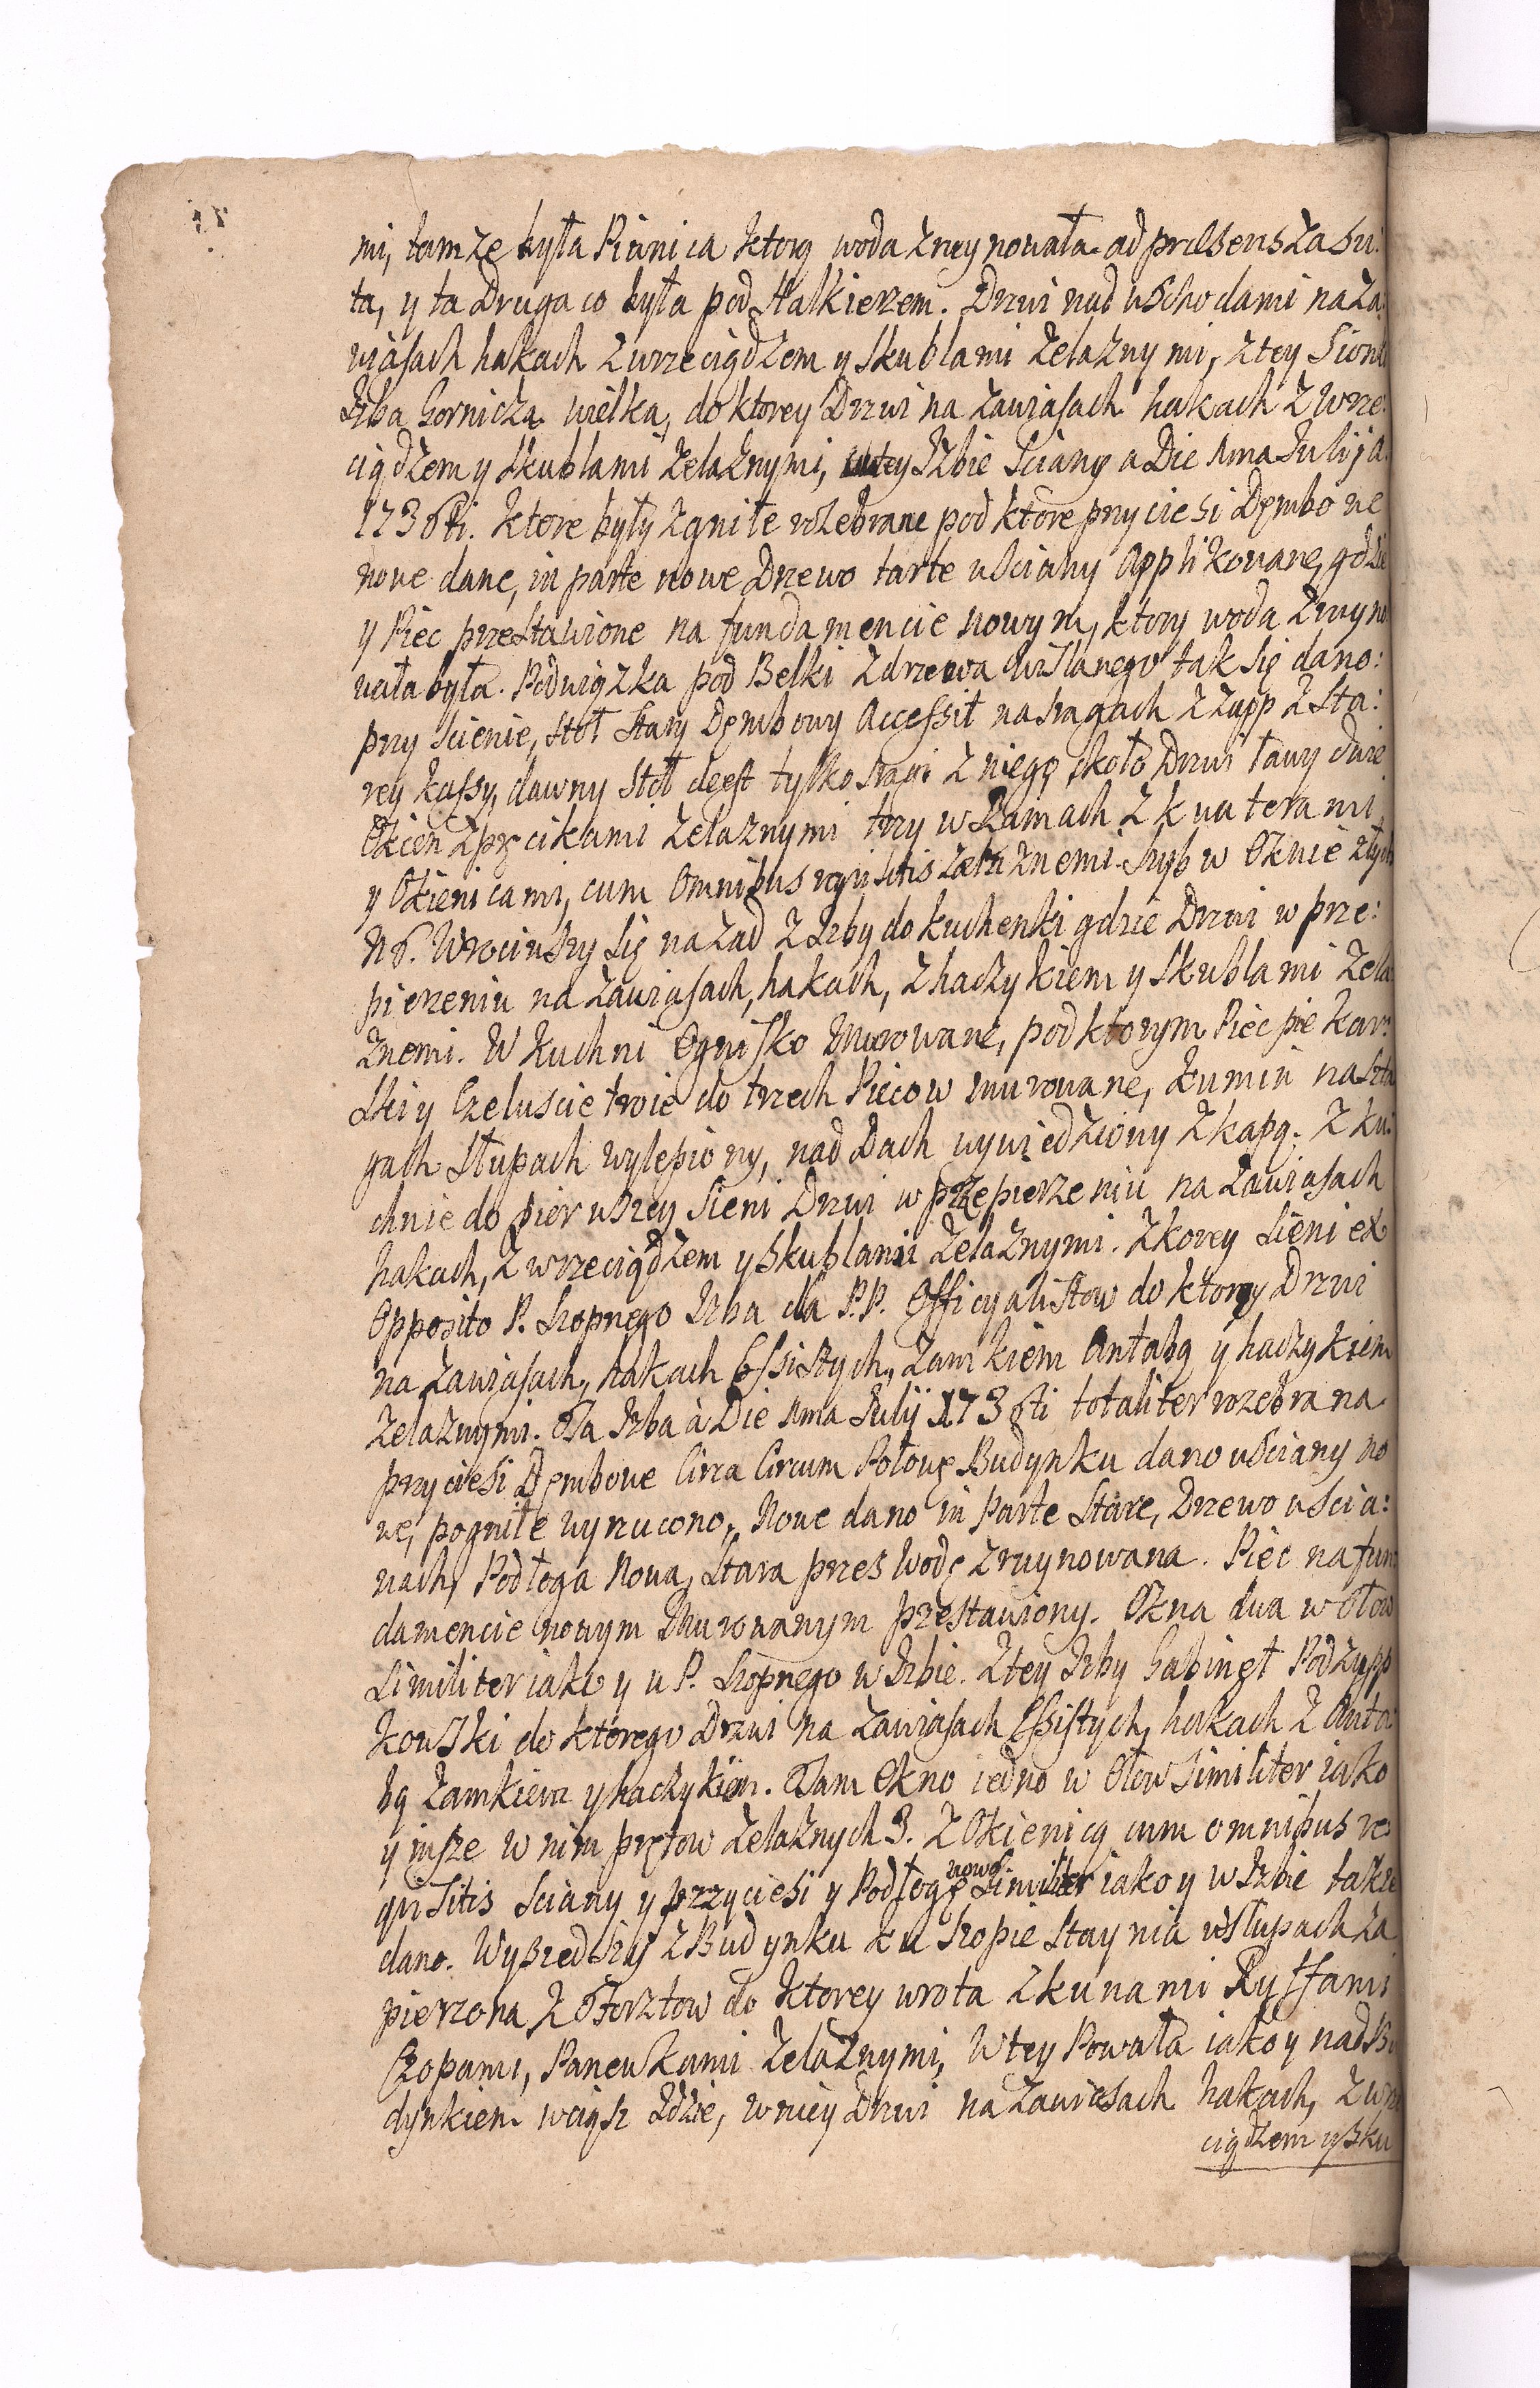 mi, tamze była Piwnica ktorą woda zruynowała ad præsens zasu:
ta, y ta Druga co była pod Halkierzem. Drzwi nad wschodami na za:
wiasach hakach z wrzeciądzem y skublami zelaznymi, z tey Sionki
Izba Gornicza wielka, do ktorey Drzwi na zawiasach hakach z wrze:
ciądzem y skublami zelaznymi, w tey Izbie Sciany a Die 1ma Julij A:
1736ti. ktore były zgniłe rozebrane pod ktore przyciesi Dębowe
nowe dane, in parte nowe Drzewo tarte w sciany applikowane, gdzie
y Piec przestawione na fundamencie nowym, ktory woda zruyno
wała była. Podwiązka pod Belki z drzewa wislanego tak się dano:
przy scienie, stoł stary Dębowy Accessit na sragach z Zupp z sta:
rey kassy, dawny stoł deest tylko sragi z niego, około Drzwi ławy dwie
Okien z pręcikami zelaznymi trzy w Ramach z kwaterami
y Okienicami, cum omnibus requisitis zelaznemi. Szyb w Oknie złych
N 6. Wrociwszy się nazad z Izby do kuchenki gdzie Drzwi w prze:
pierzeniu na zawiasach, hakach, z haczykiem y skublami zela
znemi. W kuchni Ognisko Murowane, pod ktorym Piec piekar:
ski y Czeluscie troie do trzech Piecow murowane, kumin na szra
gach słupach wylepiony, nad Dach wywiedziony z kapą. Z ku:
chnie do pierwszey Sieni Drzwi w przepierzeniu na zawiasach
hakach, z wrzeciądzem y skublami zelaznymi. Z korey Sieni ex
Opposito P. Szopnego Izba dla P.P. Officyalistow do ktorey Drzwi
na zawiasach, hakach Essistych, zamkiem Antabą y haczykiem
zelaznymi. Ta Izba à Die 1ma Julij 1736ti totaliter rozebrana
przyciesi Dębowe Circa Circum Połowę Budynku dano w sciany no
we, pogniłe wyrzucono, Nowe dano in Parte Stare, Drzewo w scia:
nach, Podłoga Nowa, Stara przes wodę zruynowana. Piec na fun
damencie nowym Murowanym przestawiony. Okna dwa w Ołow
Similiter iako y u P. Szopnego w Izbie. Z tey Izby Gabinet Podzupp
kowski do ktorego Drzwi na zawiasach Essistych, hakach z Anta
bą zamkiem y haczykiem. Tam Okno iedno w Ołow Similiter iako
y insze w nim prętow zelaznych 3. z Okienicą cum omnibus re
quisitis sciany y przyciesi y Podłogę nowo Similiter iako y w Izbie także
dano. Wyszedszy z Budynku ku Szopie Staynia w słupach za
pierzona z Forsztow do ktorey wrota z kunami Ryffami
Czopami, Panewkami zelaznymi, W tey Powała iako y nad Bu
dynkiem wciąsz idzie, w niey Drzwi na zawiesach hakach, z wrze
ciądzem y sku